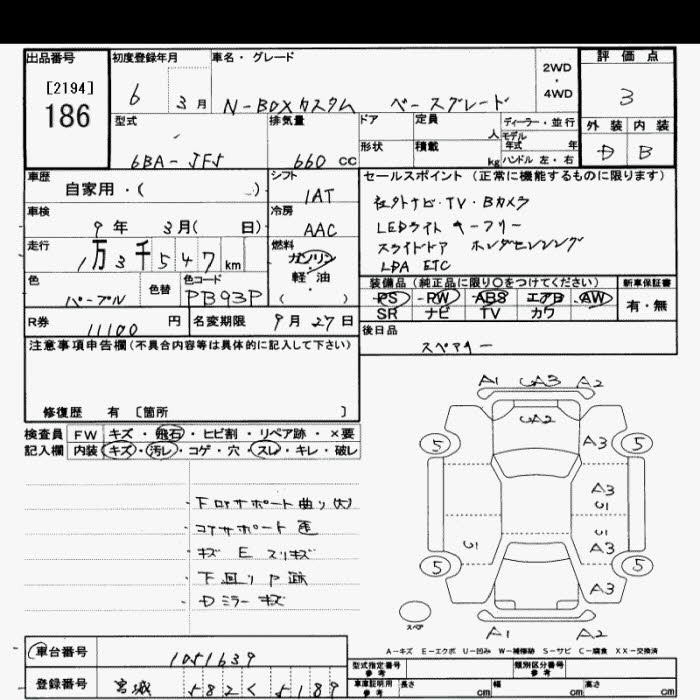 出品番号
[2194]
186
初度登録年月
6 3月
車名・グレード
N-BOXカスタム ベースグレード
2WD
・
4WD
評価点
3
外装 内装
D B
型式
6BA-JF5
排気量
660 CC
ドア
定員 人
形状
積載 kg
ディーラー・並行
モデル
年式 年
ハンドル 左・右
車歴
自家用・( )
シフト
IAT
車検
9年 3月( 日)
冷房
AAC
走行
1万3千547km
燃料
ガソリン
軽・油
( )
色
パープル
色替
色コード
PB93P
セールスポイント (正常に機能するものに限ります)
社外ナビ・TV・Bカメラ
LEDライト キーフリー
スライドドア ホンダセンシング
LDA ETC
装備品(純正品に限り〇をつけてください)
PS PW ABS エアB AW
SR ナビ TV カワ
新車保証書
有・無
R券
11100 円
名変期限
9月27日
後日品
スペアキー
注意事項申告欄(不具合内容等は具体的に記入して下さい)
修復歴 有 〔箇所 〕
検査員
記入欄
FW キズ・飛石・ヒビ割・リペア跡・×要
内装 キズ・汚レ・コゲ・穴・スレ・キレ・破レ
下回りサポート曲り(大)
コアサポート
キズ E スリキズ
下回り P 跡
Dミラー キズ
A1 UA3 A2
UA2
5 A3 5
A3
U1
U1 A3
5 A3 5
スペア
A1 A2
A-キズ E-エクボ U-凹み W-補修跡 S-サビ C-腐食 XX-交換済
車台番号
1051639
登録番号
宮城 582 く 5189
型式指定番号
参考
類別区分番号
参考
車庫証明用
参考
長さ cm 幅 cm 高さ cm